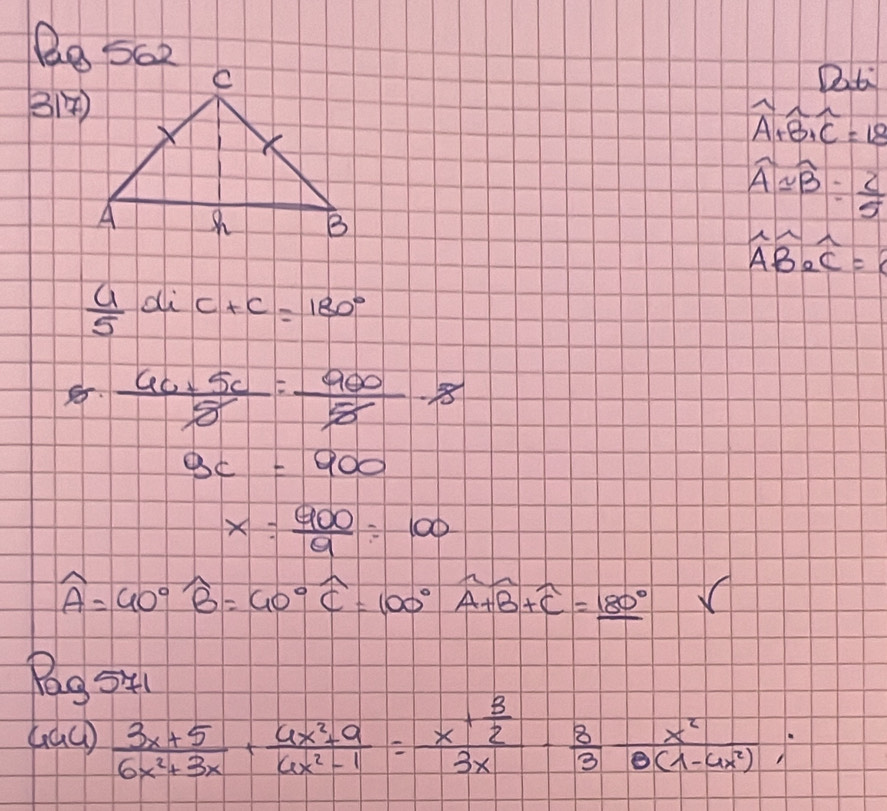 Pag 562
317)
C
A h B
Dati
Â+B̂+Ĉ = 18
Â ≅ B̂ = 2/5
ÂB̂ e Ĉ =
4/5 di C + C = 180°
5 · (4C + 5C)/5 = 900/5 · 5
9C = 900
x = 900/9 = 100
Â = 40° B̂ = 40° Ĉ = 100° Â+B̂+Ĉ = 180° √
Pag 571
444) (3x+5)/(6x²+3x) + (4x²+9)/(4x²-1) = (x + 3/2)/(3x) - 8/3 x²/((1-4x²)) ;